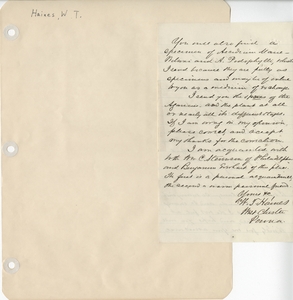 Haines, W T.
You will also find a
specimen of Aecidium
and A. Podophylli, which
I send because they are fully
specimens and may be of value
to you as a medium of exchange.
I send you the of the
and the plants at all
or nearly all its different stages.
If I am wrong in my opinion
please correct and accept
my thanks for the correction.
I am acquainted with
both Wm C. Stevenson of Philadelphia
and Benjamin Everhart of this place
the first is a personal acquaintance
the second a warm personal friend
Yours &c.
Haines
West Chester
Penna